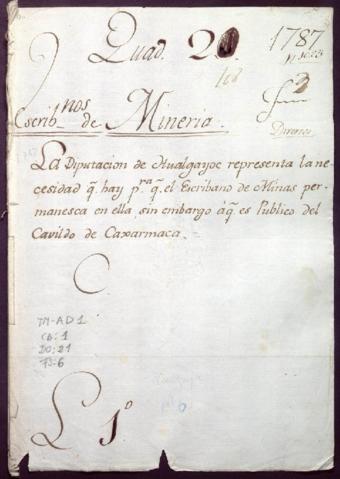 Quad. 20
1787
Escrib.nos de Mineria.
Diversos
La Diputacion de Hualgayoc representa la ne-
cesidad q.̃ hay p.ra q.̃ el Escribano de Minas per-
manesca en ella, sin embargo áq.̃ es Publico del
Cavildo de Caxarmaca.=
C
TM-AD1
CA: 1
DO: 21
FS: 6
L 1º